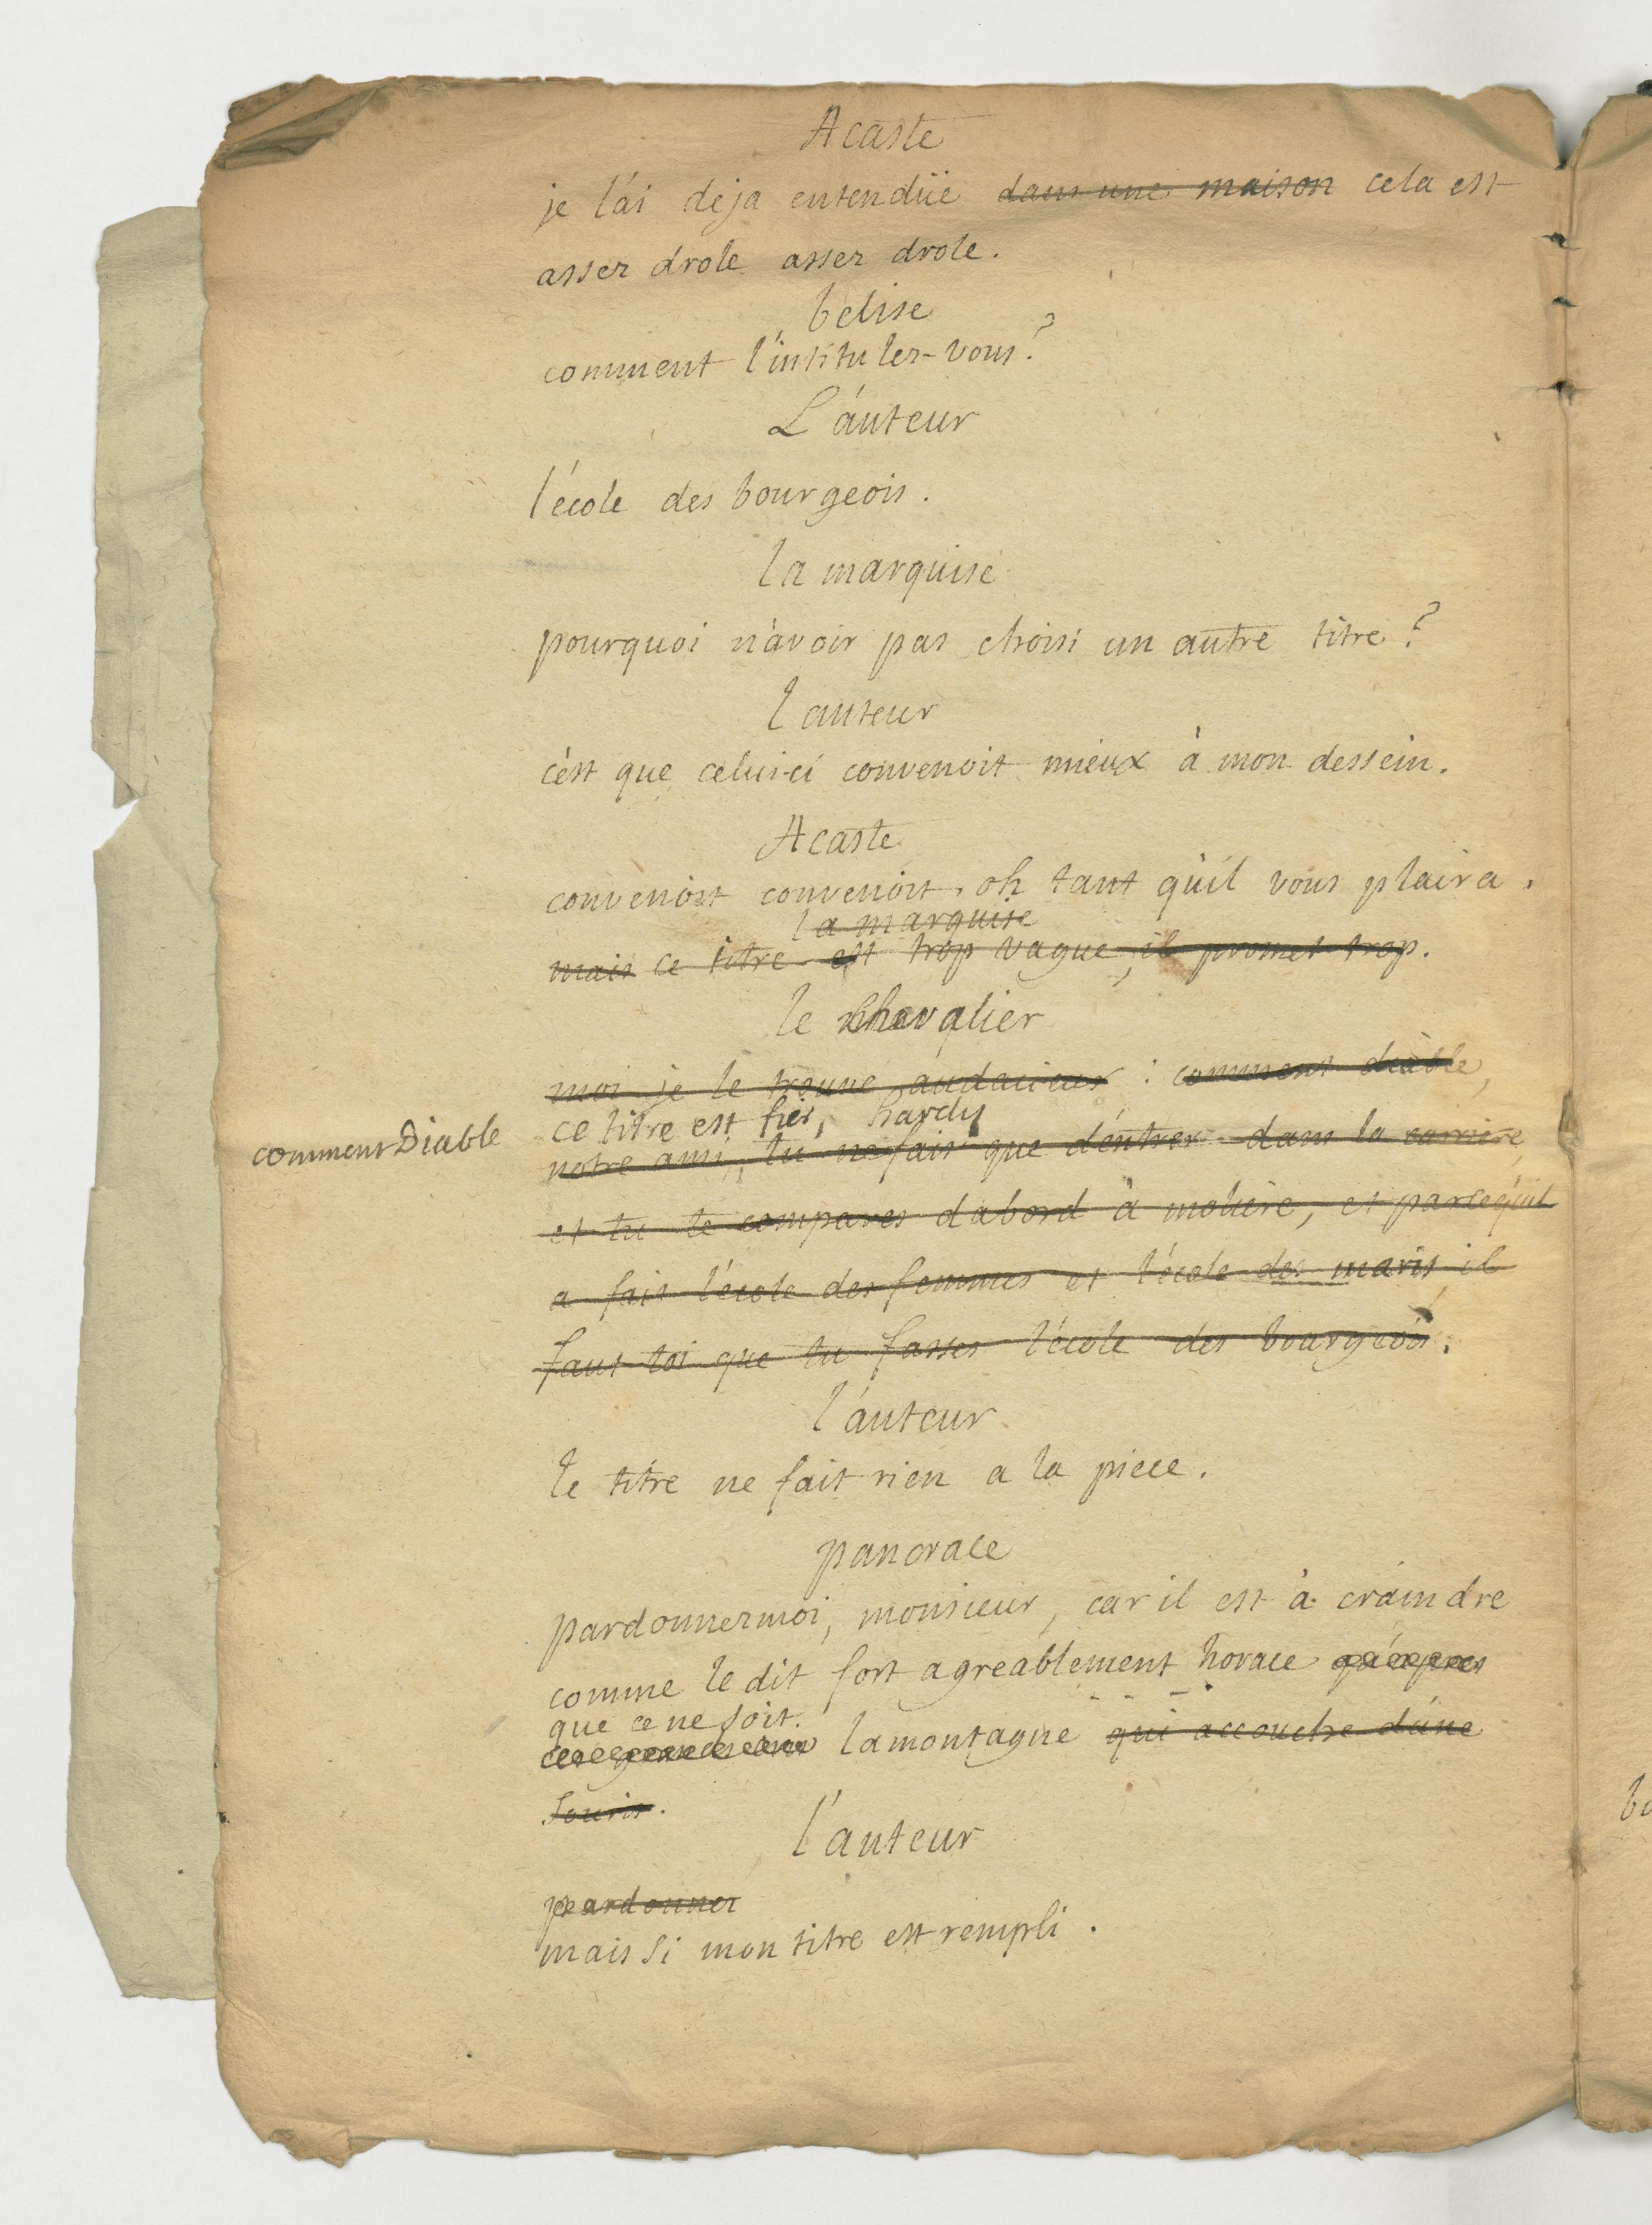 Acaste
je l'ai deja entendüe dans une maison cela est
assez drole assez drole.
belise
comment l'intitulez-vous?
L'auteur
l'école des bourgeois.
la marquise
pourquoi n'avoir pas choisi un autre titre?
l'auteur
c'est que celui-ci convenoit mieux à mon dessein.
Acaste
convenoit convenoit, oh tant qu'il vous plaira.
la marquise
mais ce titre est trop vague, il promet trop.
le chevalier
moi je le trouve audacieux : comment diable,
ce titre est fier, hardy
comment Diable
notre ami, tu ne fais que d'entrer dans la carriere,
et tu te compares d'abord à moliere, et parcequ'il
a fait l'école des femmes et l'école des maris, il
faut toi que tu fasses l'école des bourgeois.
l'auteur
le titre ne fait rien a la piece.
pancrace
pardonnezmoi, monsieur, car il est à craindre
comme le dit fort agreablement horace
que ce ne soit
la montagne qui accouche d'une
souris.
l'auteur
pardonnez
mais si mon titre est rempli.
bo